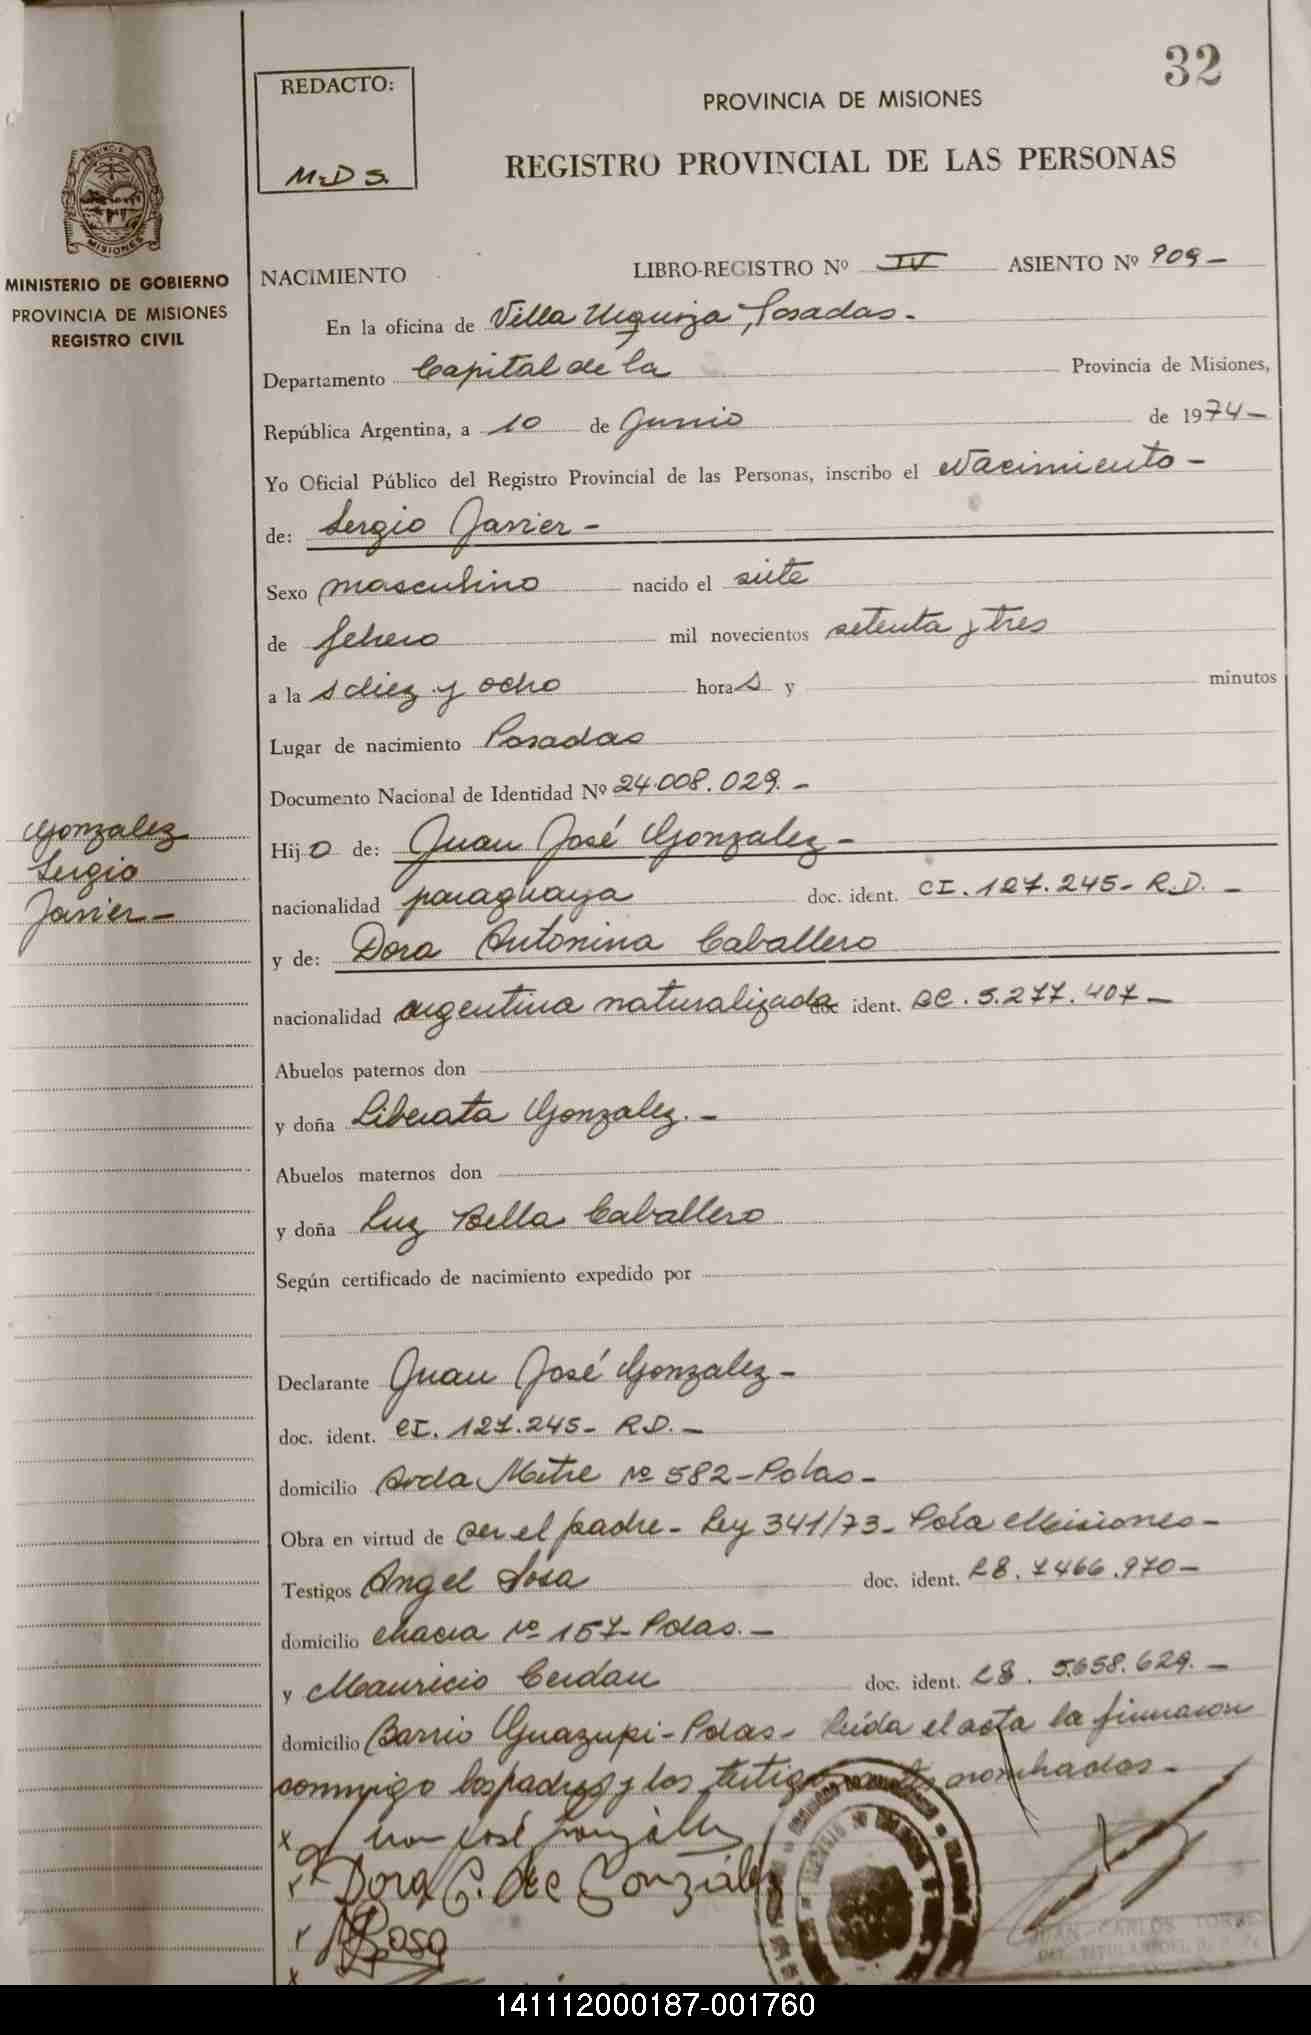 32
REDACTO:
M.D S.
PROVINCIA DE MISIONES
REGISTRO PROVINCIAL DE LAS PERSONAS
PROVINCIA
MISIONES
MINISTERIO DE GOBIERNO
PROVINCIA DE MISIONES
REGISTRO CIVIL
NACIMIENTO LIBRO-REGISTRO Nº IV ASIENTO Nº 909-
En la oficina de Villa Urquiza, Posadas.-
Departamento Capital de la Provincia de Misiones,
República Argentina, a 10 de Junio de 1974-
Yo Oficial Público del Registro Provincial de las Personas, inscribo el Nacimiento-
de: Sergio Javier-
Sexo masculino nacido el siete
de febrero mil novecientos setenta y tres
a la s diez y ocho hora s y minutos
Lugar de nacimiento Posadas
Documento Nacional de Identidad Nº 24.008.029.-
Gonzalez
Sergio
Javier-
Hij o de: Juan José Gonzalez-
nacionalidad paraguaya doc. ident. CI. 127.245- R.D. -
y de: Dora Antonina Caballero
nacionalidad argentina naturalizada doc ident. DC. 5.277.407-
Abuelos paternos don
y doña Liberata Gonzalez.-
Abuelos maternos don
y doña Luz Bella Caballero
Según certificado de nacimiento expedido por
Declarante Juan José Gonzalez-
doc. ident. CI. 127.245- R.D.-
domicilio Avda Mitre nº 582-Pdas-
Obra en virtud de ser el padre- Ley 341/73- Pcia Misiones-
Testigos Angel Sosa doc. ident. LE. 7.466.970-
domicilio chacra Nº 157-Pdas.-
y Mauricio Cerdan doc. ident. LE. 5.658.629.-
domicilio Barrio Guazupi-Pdas- Leída el acta la firmaron
conmigo los padres y los testigos nombrados-
x Juan José González
Dora C. de González
A Sosa
x
JUAN CARLOS TORRES
141112000187-001760